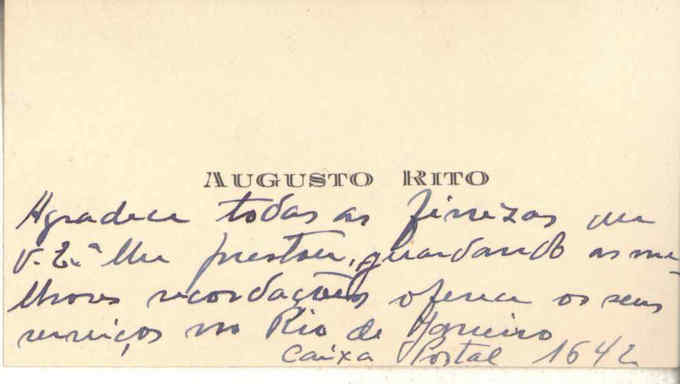 AUGUSTO RITO
Agradece todas as finezas que
V. Ex.ª lhe prestou, guardando as me-
lhores recordações oferece os seus
serviços no Rio de Janeiro
Caixa Postal 1642